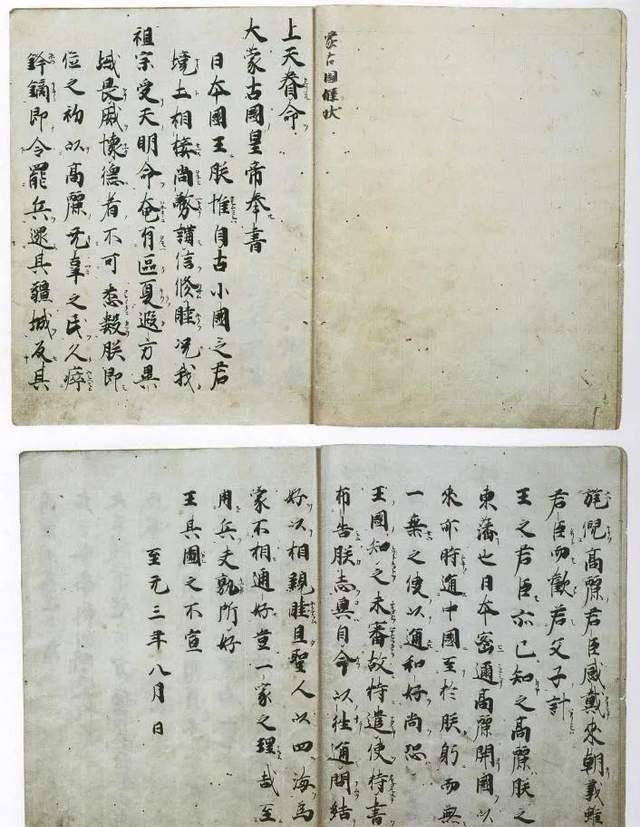 蒙古國牒状
上天眷命
大蒙古國皇帝奉書
日本國王朕惟自古小國之君
境土相接尚務講信修睦況我
祖宗受天明命奄有區夏遐方異
域畏威懷德者不可悉數朕即
位之初以高麗无辜之民久瘁
鋒鏑即令罷兵還其疆域反其
旄倪高麗君臣感戴來朝義雖
君臣而歡若父子計
王之君臣亦已知之高麗朕之
東藩也日本密邇高麗開國以
來亦時通中國至於朕躬而無
一乗之使以通和好尚恐
王國知之未審故特遣使持書
布告朕志冀自今以往通問結
好以相親睦且聖人以四海為
家不相通好豈一家之理哉至
用兵夫孰所好
王其圖之不宣
至元三年八月日